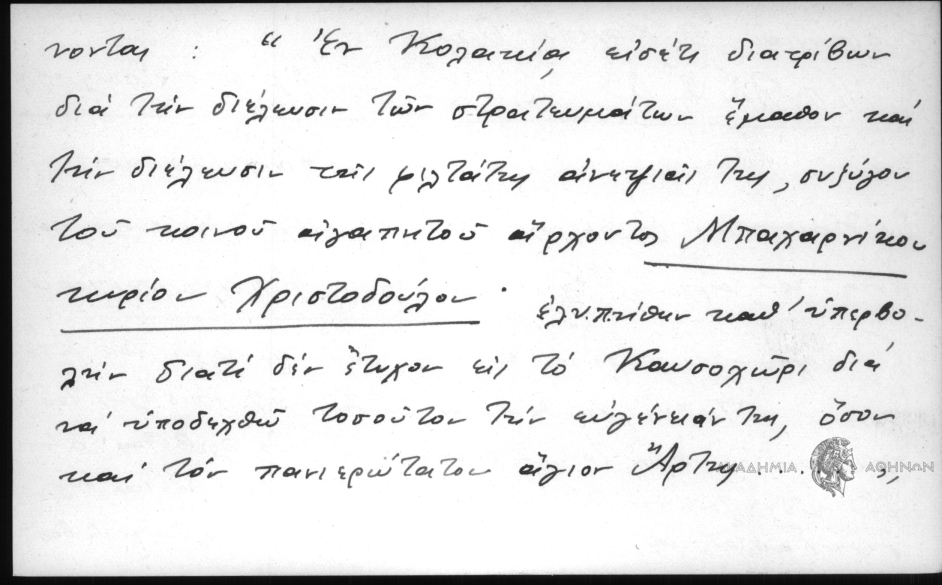 νονται : "Ἐν Κολακιᾷ εἰσέτι διατρίβων
διά τήν διέλευσιν τῶν στρατευμάτων ἔμαθον καί
τήν διέλευσιν τῆς φιλτάτης ἀνεψιᾶς της, συζύγου
τοῦ κοινοῦ ἀγαπητοῦ ἄρχοντος Μπαχαρνίκου
κυρίου Χριστοδούλου· ἐλυπήθην καθ' ὑπερβο-
λήν διατί δέν ἔτυχον εἰς τό Καυσοχῶρι διά
νά ὑποδεχθῶ τοσοῦτον τήν εὐγένειάν της, ὅσον
καί τόν πανιερώτατον ἅγιον Ἄρτης....."
ΑΚΑΔΗΜΙΑ ΑΘΗΝΩΝ